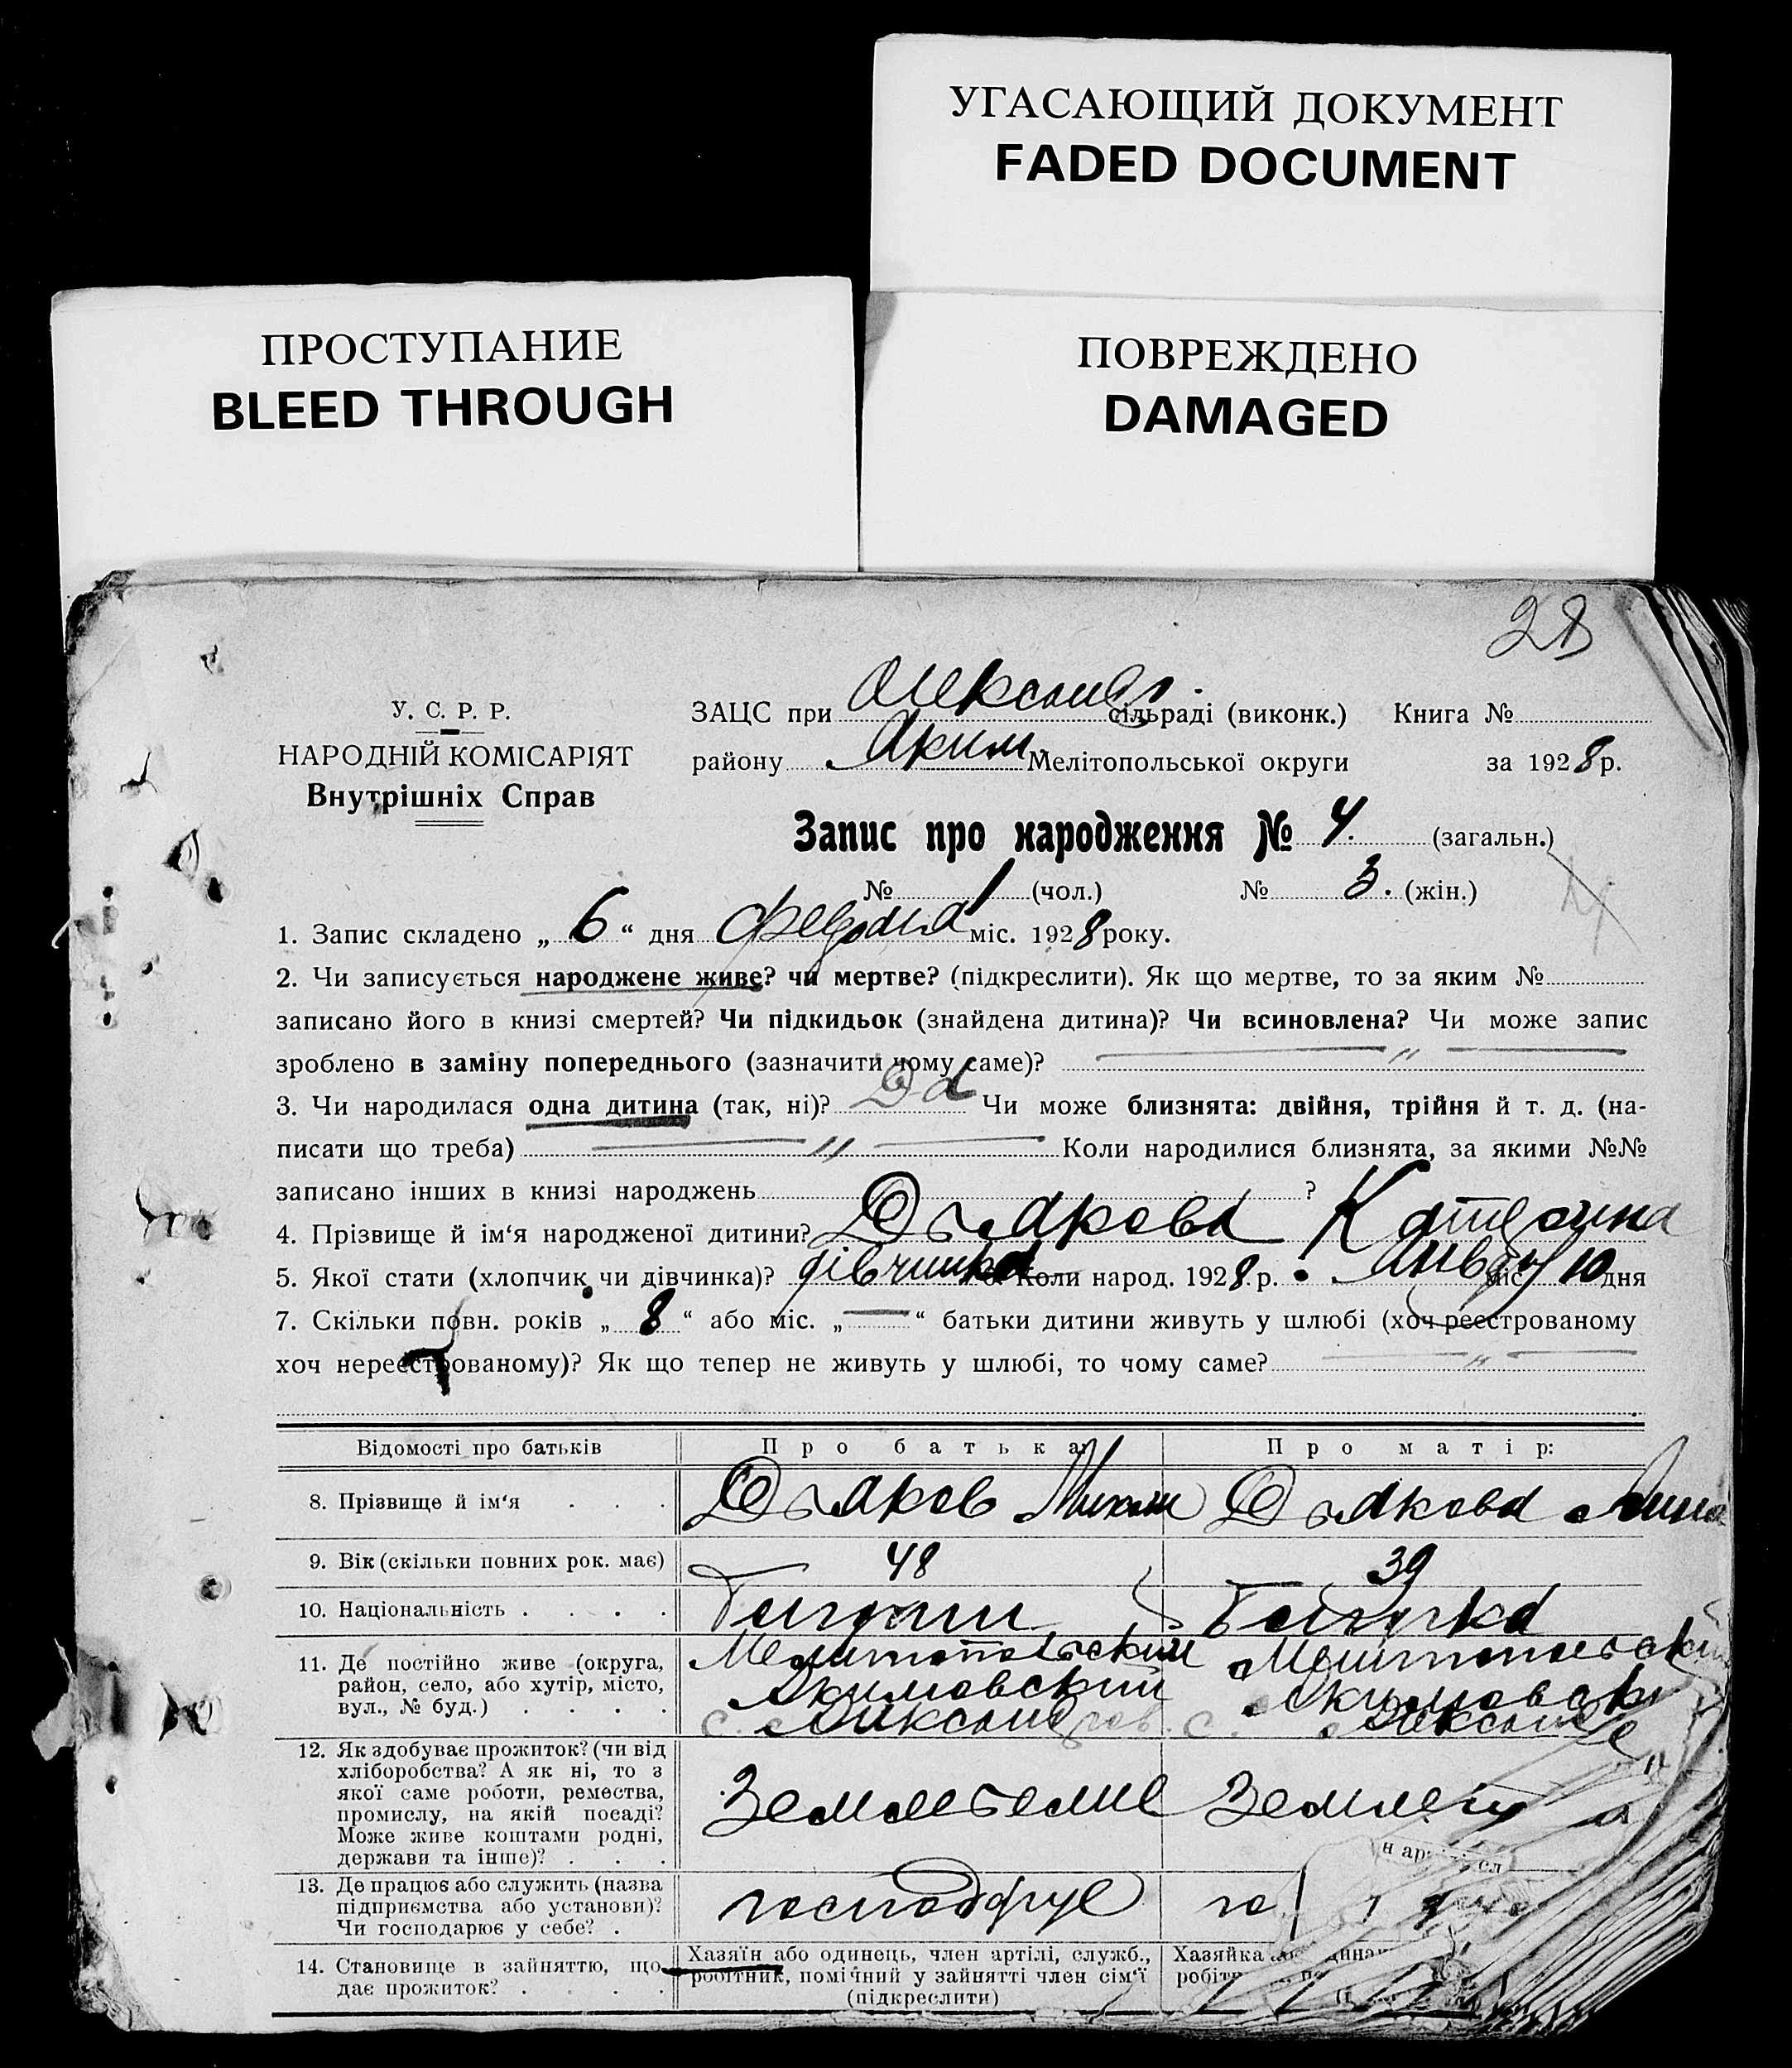 УГАСАЮЩИЙ ДОКУМЕНТ
FADED DOCUMENT
ПРОСТУПАНИЕ
BLEED THROUGH
ПОВРЕЖДЕНО
DAMAGED
28
У. С. Р. Р.
НАРОДНІЙ КОМІСАРІЯТ
Внутрішніх Справ
ЗАЦС при Олександ. сільраді (виконк.) Книга №
району Аким Мелітопольської округи за 1928 р.
Запис про народження № 4. (загальн.)
№ 1 (чол.) № 3. (жін.)
1. Запис складено „ 6 “ дня міс. 1928 року.
2. Чи записується народжене живе? чи мертве? (підкреслити). Як що мертве, то за яким №
записано його в книзі смертей? Чи підкидьок (знайдена дитина)? Чи всиновлена? Чи може запис
зроблено в заміну попереднього (зазначити чому саме)? — „ —
3. Чи народилася одна дитина (так, ні)? Да Чи може близнята: двійня, трійня й т. д. (на-
писати що треба) — „ — Коли народилися близнята, за якими №№
записано інших в книзі народжень ?
4. Прізвище й ім‘я народженої дитини? Дьякова Катерина
5. Якої стати (хлопчик чи дівчинка)? дівчинка 6. Коли народ. 1928 р. Январ міс 10 дня
7. Скільки повн. років „ 8 “ або міс. „ — “ батьки дитини живуть у шлюбі (хоч реєстрованому
хоч нереєстрованому)? Як що тепер не живуть у шлюбі, то чому саме? — „ —
Відомості про батьків Про батька: Про матір:
8. Прізвище й ім‘я . . . Дьяков Микола Дьякова Анна
9. Вік (скільки повних рок. має) 48 39
10. Національність . . . . Болгарин Болгарка
11. Де постійно живе (округа,
район, село, або хутір, місто,
вул., № буд.) . . . .
Мелитопольский Мелитопольский
Акимовский Акимовск
с. Александров. с. Александ
12. Як здобуває прожиток? (чи від
хліборобства? А як ні, то з
якої саме роботи, ремества,
промислу, на якій посаді?
Може живе коштами родні,
держави та інше)? . . .
13. Де працює або служить (назва
підприємства або установи)?
Чи господарює у себе? .
господарує го
14. Становище в зайняттю, що
дає прожиток? . . . .
Хазяїн або одинець, член артілі, служб.,
робітник, помічний у зайнятті член сім‘ї
(підкреслити)
Хазяйка